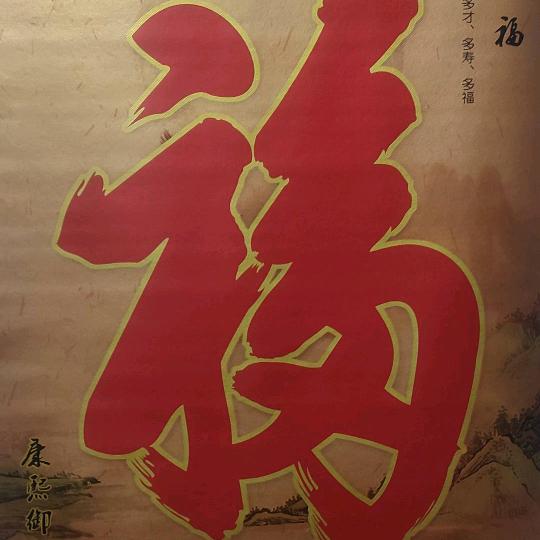 福
多才、多寿、多福
福
康熙御